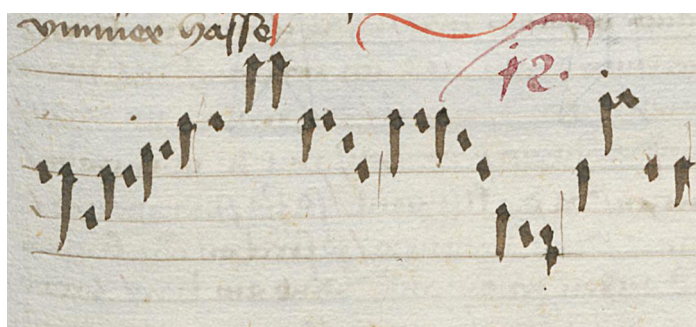 ymmer hasse
12.